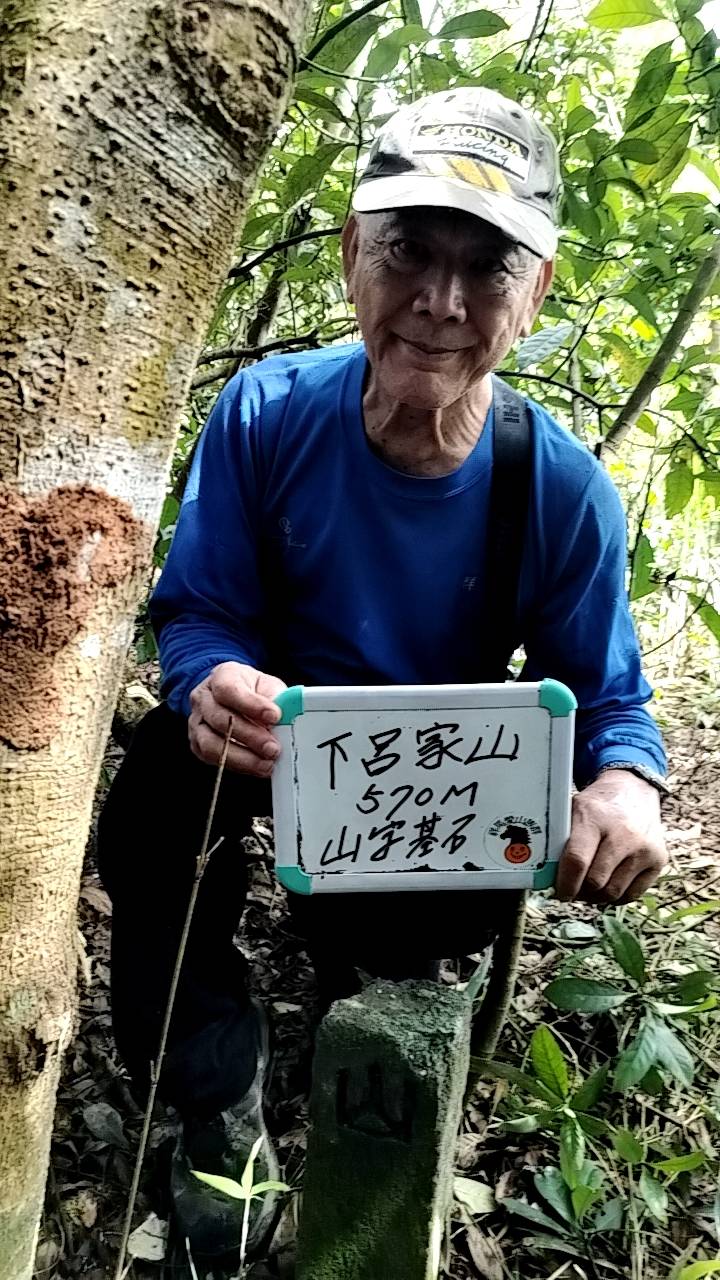 HONDA
Racing
祥
下呂家山
570M
山字基石
山